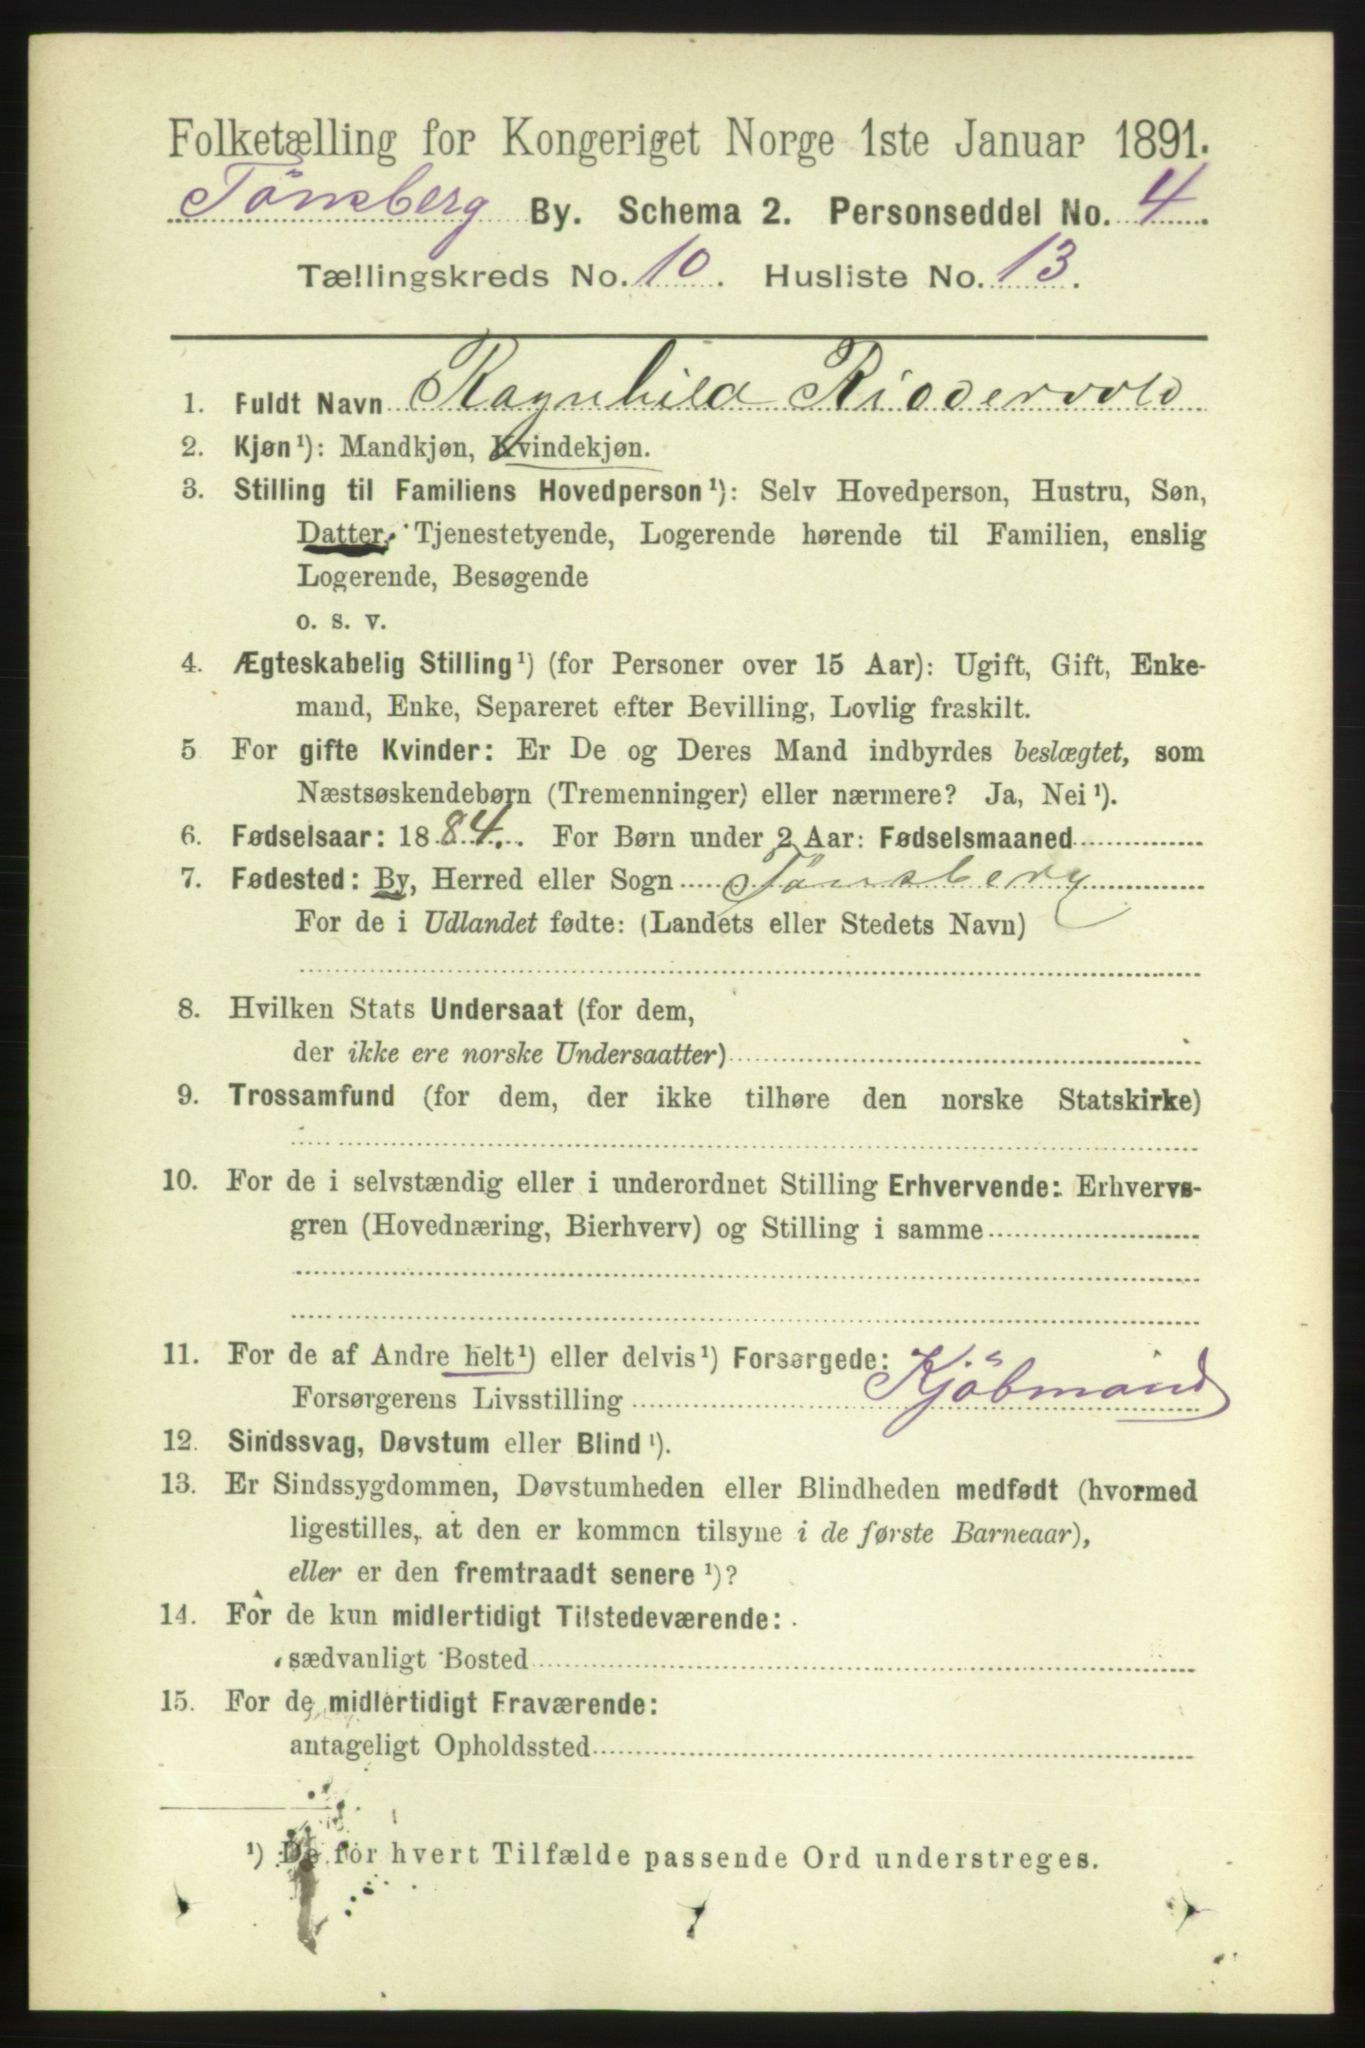 Folketælling for Kongeriget Norge 1ste Januar 1891.
Tönsberg By. Schema 2. Personseddel No. 4.
Tællingskreds No. 10. Husliste No. 13.
1. Fuldt Navn Ragnhild Riddervold
2. Kjøn¹): Mandkjøn, Kvindekjøn.
3. Stilling til Familiens Hovedperson¹): Selv Hovedperson, Hustru, Søn,
Datter, Tjenestetyende, Logerende hørende til Familien, enslig
Logerende, Besøgende
o. s. v.
4. Ægteskabelig Stilling¹) (for Personer over 15 Aar): Ugift, Gift, Enke-
mand, Enke, Separeret efter Bevilling, Lovlig fraskilt.
5 For gifte Kvinder: Er De og Deres Mand indbyrdes beslægtet, som
Næstsøskendebørn (Tremenninger) eller nærmere? Ja, Nei¹).
6. Fødselsaar: 1884. For Børn under 2 Aar: Fødselsmaaned
7. Fødested: By, Herred eller Sogn Tönsberg
For de i Udlandet fødte: (Landets eller Stedets Navn)
8. Hvilken Stats Undersaat (for dem,
der ikke ere norske Undersaatter)
9. Trossamfund (for dem, der ikke tilhøre den norske Statskirke)
10. For de i selvstændig eller i underordnet Stilling Erhvervende: Erhvervs-
gren (Hovednæring, Bierhverv) og Stilling i samme
11. For de af Andre helt¹) eller delvis¹) Forsørgede:
Forsørgerens Livsstilling Kjöbmand
12. Sindssvag, Døvstum eller Blind¹).
13. Er Sindssygdommen, Døvstumheden eller Blindheden medfødt (hvormed
ligestilles, at den er kommen tilsyne i de første Barneaar),
eller er den fremtraadt senere¹)?
14. For de kun midlertidigt Tilstedeværende:
sædvanligt Bosted
15. For de midlertidigt Fraværende:
antageligt Opholdssted
¹) De for hvert Tilfælde passende Ord understreges.